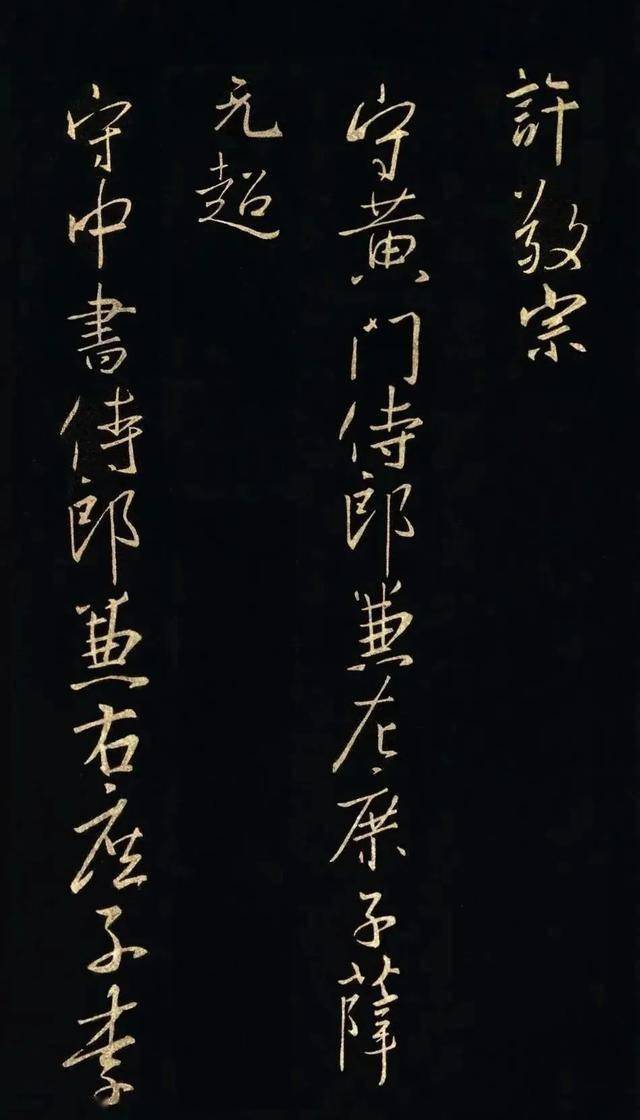 許敬宗
守黃門侍郎兼左庶子薛
元超
守中書侍郎兼右庶子李